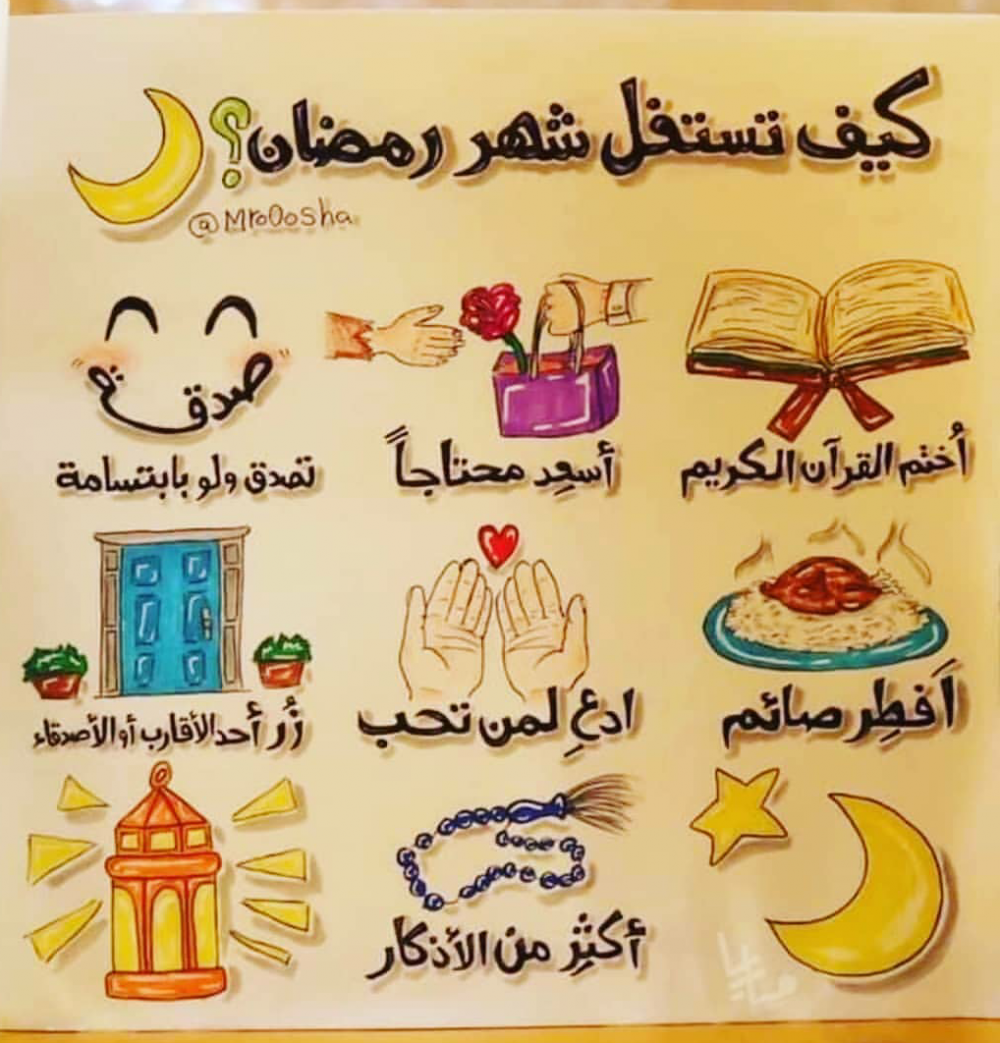 كيف تستغل شهر رمضان؟
@MroOosha
أُختم القرآن الكريم
أسعِد محتاجاً
صدقة
تصدق ولو بابتسامة
اَفطِر صائم
ادعِ لمن تحب
زُر أحد الأقارب أو الأصدقاء
أكثِر من الأذكار